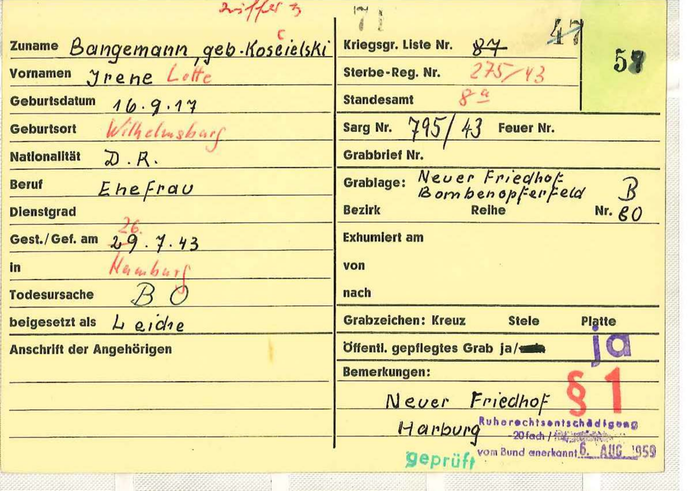 Ziffer 3
71
47
Zuname Bangemann, geb. Kosćielski
Kriegsgr. Liste Nr. 87
57
Vornamen Irene Lotte
Sterbe-Reg. Nr. 275/43
Geburtsdatum 16.9.17
Standesamt 8a
Geburtsort Wilhelmsburg
Sarg Nr. 795/43 Feuer Nr.
Nationalität D.R.
Grabbrief Nr.
Beruf Ehefrau
Grablage: Neuer Friedhof
Bombenopferfeld B
Dienstgrad
Bezirk Reihe Nr. 80
26.
Gest./Gef. am 29.7.43
Exhumiert am
in Hamburg
von
Todesursache BO
nach
beigesetzt als Leiche
Grabzeichen: Kreuz Stele Platte
Anschrift der Angehörigen
Öffentl. gepflegtes Grab ja/ ja
Bemerkungen:
§ 1
Neuer Friedhof
Harburg
Ruherechtsentschädigung
20fach /
vom Bund anerkannt 6. AUG 1959
geprüft